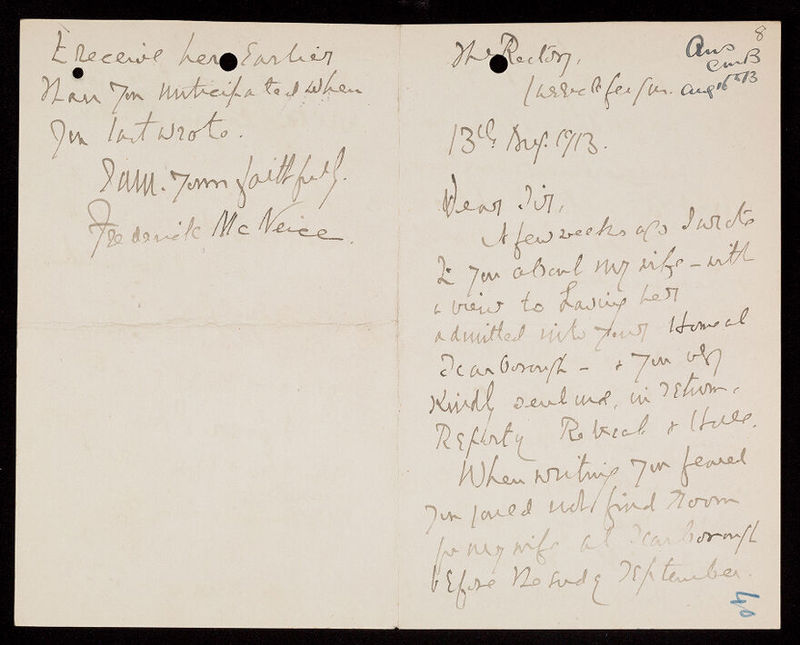 8
The Rectory,
Carrickfergus.
Ans
Aug 16th 13
13th Aug. 1913.
Dear Sir,
A few weeks ago I wrote
to you about my wife - with
a view to having her
admitted into your Home at
Scarborough - & you very
kindly sent me, in return,
Reports of Retreat &
When writing you feared
you could not find room
for my wife at Scarborough
before the end of September.
40
to receive her Earlier
than you anticipated when
you last wrote.
I am. Yours faithfully.
Frederick McNeice.